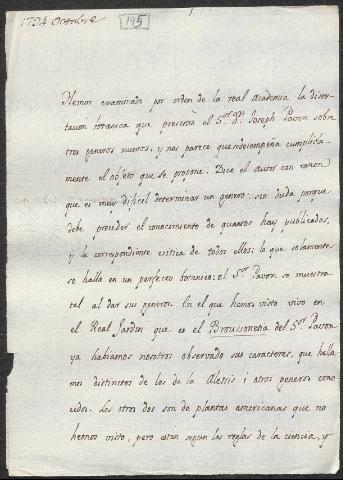 1794 Octubre
195
Hemos examinado por orden de la real academia la diser-
tacion botanica que presentó el S.or D.n Joseph Pavon sobre
tres generos nuevos, y nos parece que desempeña cumplida-
mente el objeto que se propone. Dice el autor con razon
que es muy dificil determinar un genero: sin duda porque
debe preceder el conocimiento de quantos hay publicados,
y la correspondiente critica de todos ellos: lo que solamente
se halla en un perfecto botanico: el S.or Pavon se muestra
tal al dar sus generos. En el que hemos visto vivo en
el Real Jardin que es el Broussonetia del S.or Pavon
ya habiamos nosotros observado sus caracteres, que halla-
mos distintos de los de la Aletris i otros generos cono-
cidos. Los otros dos son de plantas americanas que no
hemos visto, pero estan segun las reglas de la ciencia, y